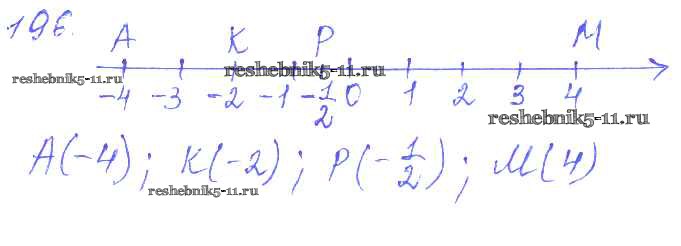 196.
A K P M
reshebnik5-11.ru reshebnik5-11.ru
-4 -3 -2 -1 -1/2 0 1 2 3 4
reshebnik5-11.ru
A(-4); K(-2); P(-1/2); M(4)
reshebnik5-11.ru